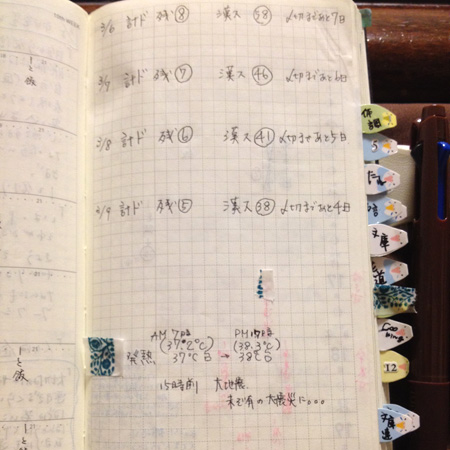 3/6 計ド 残⑧ 漢ス 58 〆切まであと7日
3/7 計ド 残⑦ 漢ス 46 〆切まであと6日
3/8 計ド 残⑥ 漢ス 41 〆切まであと5日
3/9 計ド 残⑤ 漢ス 38 〆切まであと4日
AM 7時 PM 17時
(37.2℃) (38.3℃)
発熱 37℃台 → 38℃台
15時前 大地震
未だ有の大震災に。。。
5
文庫
12